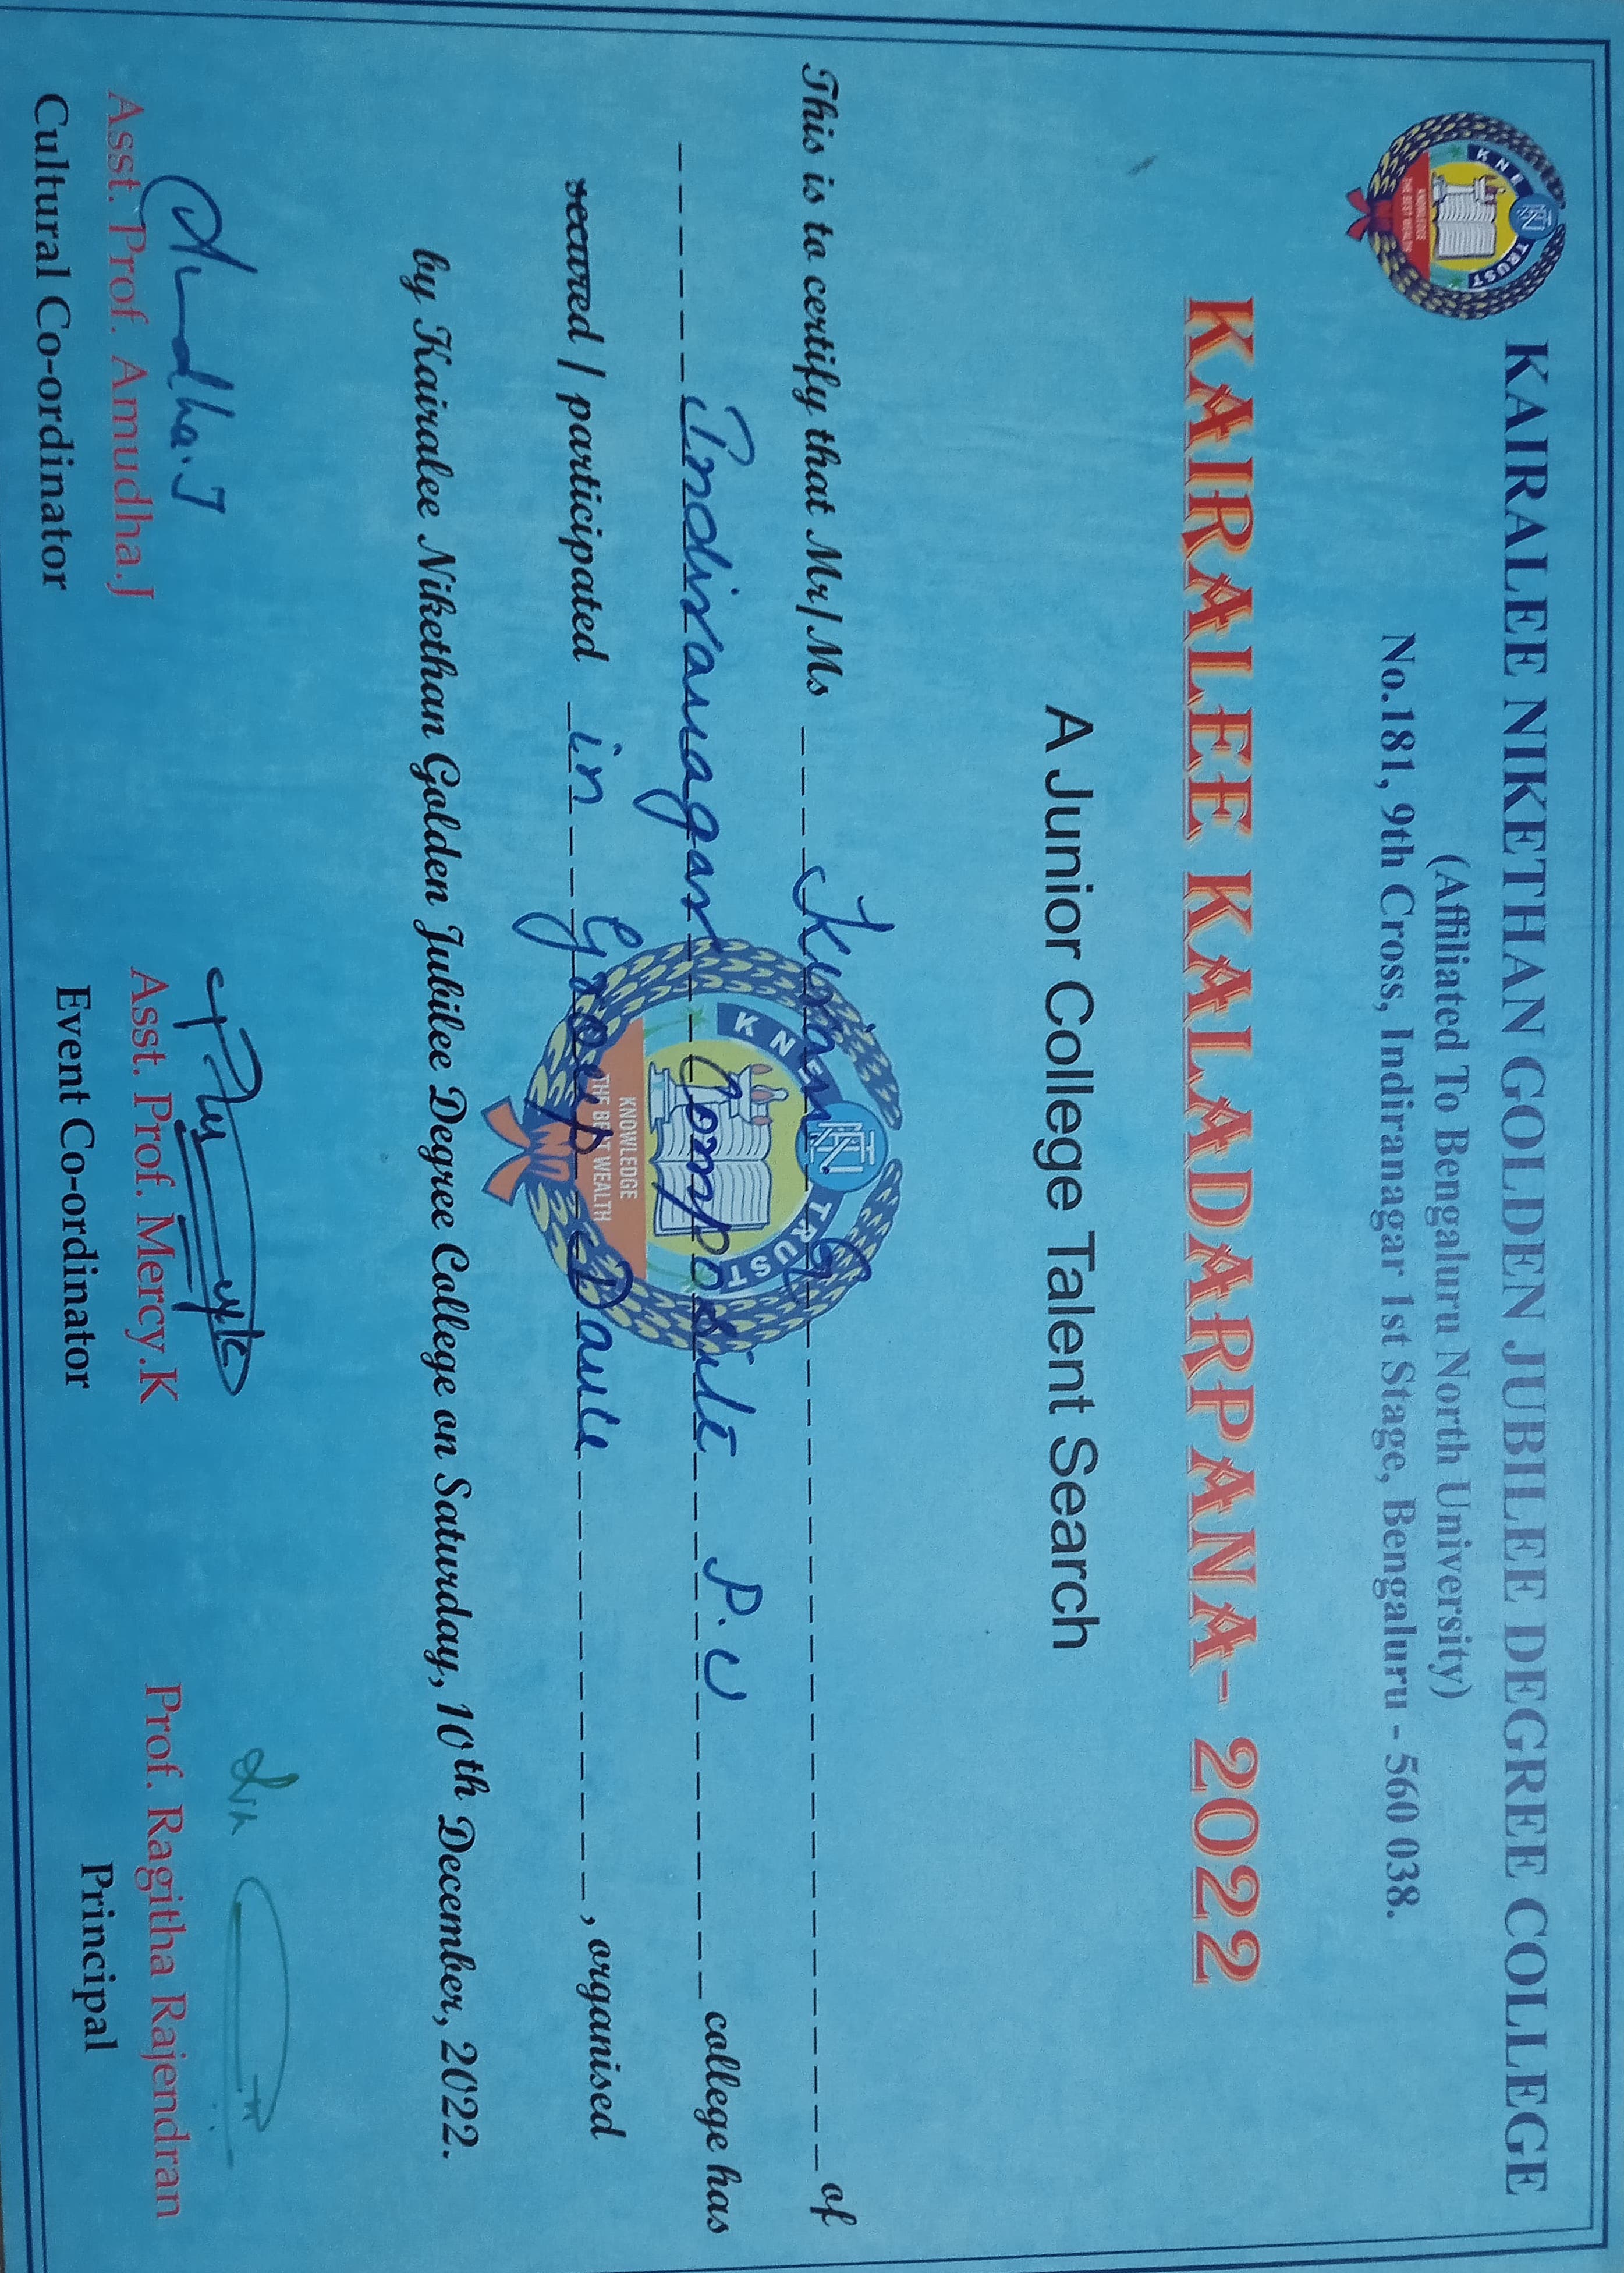 KNE TRUST
KNOWLEDGE
THE BEST WEALTH
KAIRALEE NIKETHAN GOLDEN JUBILEE DEGREE COLLEGE
(Affiliated To Bengaluru North University)
No.181, 9th Cross, Indiranagar 1st Stage, Bengaluru - 560 038.
KAIRALEE KALADARPANA- 2022
A Junior College Talent Search
This is to certify that Mr/Ms Kiran G of
KNE TRUST
Indiranagar Composite P.U college has
KNOWLEDGE
THE BEST WEALTH
secured / participated in Group Dance, organised
by Kairalee Nikethan Golden Jubilee Degree College on Saturday, 10th December, 2022.
Amudha.J
Asst. Prof. Amudha.J
Cultural Co-ordinator
Asst. Prof. Mercy.K
Event Co-ordinator
Prof. Ragitha Rajendran
Principal